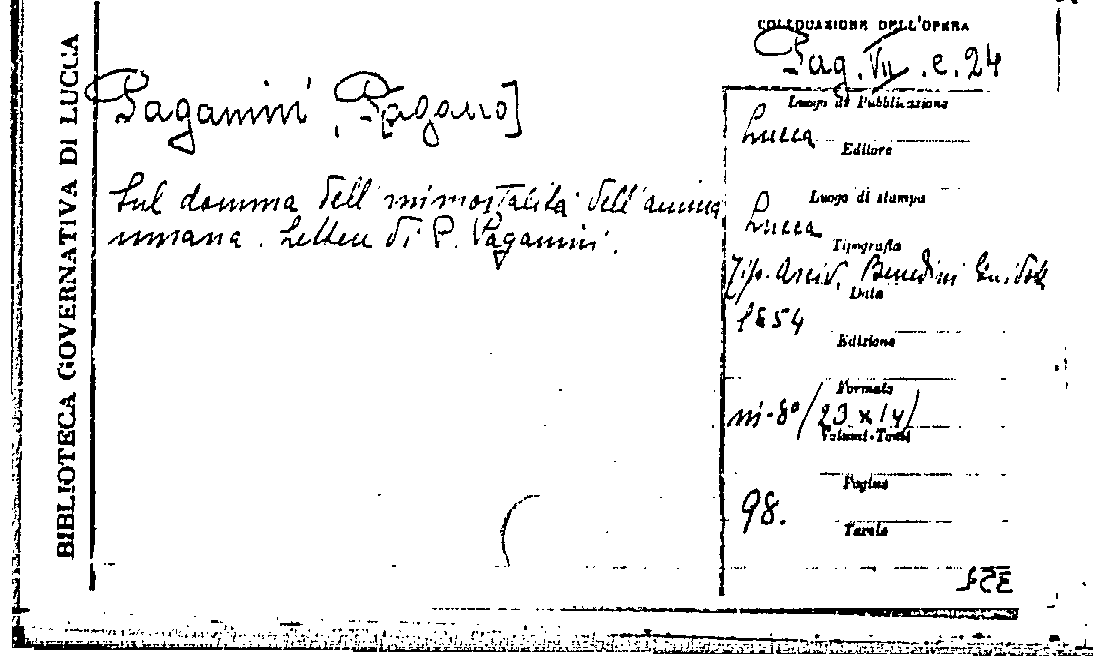 BIBLIOTECA GOVERNATIVA DI LUCCA
Paganini, P[agano]
Sul domma dell'immortalità dell'anima
umana. Lettere di P. Paganini.
COLLOCAZIONE DELL'OPERA
Pag. VII. c. 24
Luogo di Pubblicazione
Lucca
Editore
Luogo di stampa
Lucca
Tipografia
Tip. Arciv. Benedini Guidotti
Data
1854
Edizione
Formato
in-8° (23 x 14)
Volumi-Tomi
Pagine
98.
Tavole